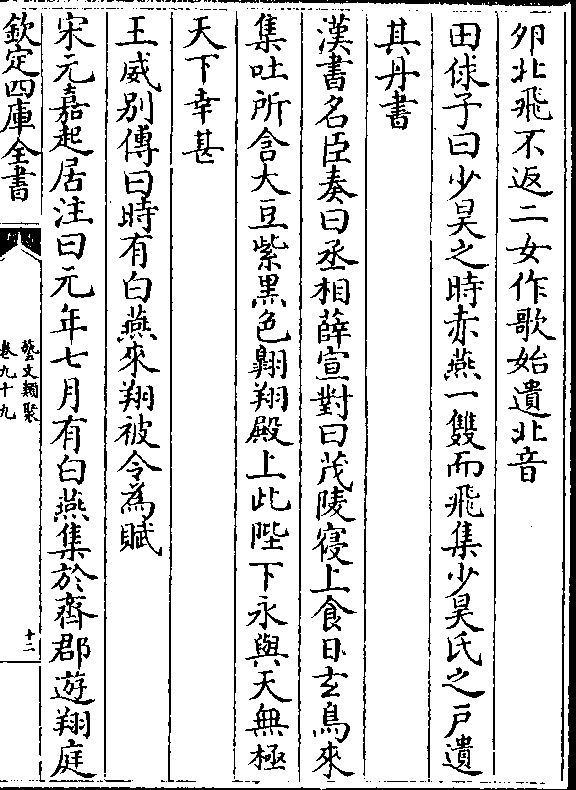 夘北飛不返二女作歌始遺北音
田俅子曰少昊之時赤燕一雙而飛集少昊氏之戸遺
其丹書
漢書名臣奏曰丞相薛宣對曰茂陵寑上食日玄鳥來
集吐所含大豆紫黒色翺翔殿上此陛下永與天無極
天下幸甚
王威别傳曰時有白燕來翔被令為賦
宋元嘉起居注曰元年七月有白燕集於齊郡遊翔庭
欽定四庫全書
藝文類聚
卷九十九
十二